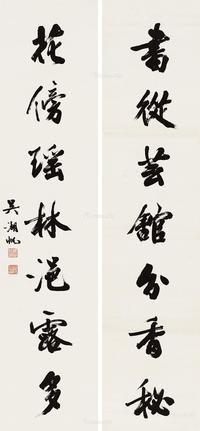 書從芸館分香秘
花傍瑶林浥露多
吴湖帆